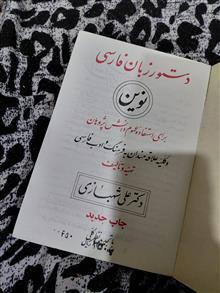 دستور زبان فارسی
نوین
برای استفاده عموم دانش پژوهان
و کلیه علاقه‌مندان به فرهنگ و ادب فارسی
تهیه و تالیف
دکتر علی شهبازی
چاپ جدید
۶۵۰